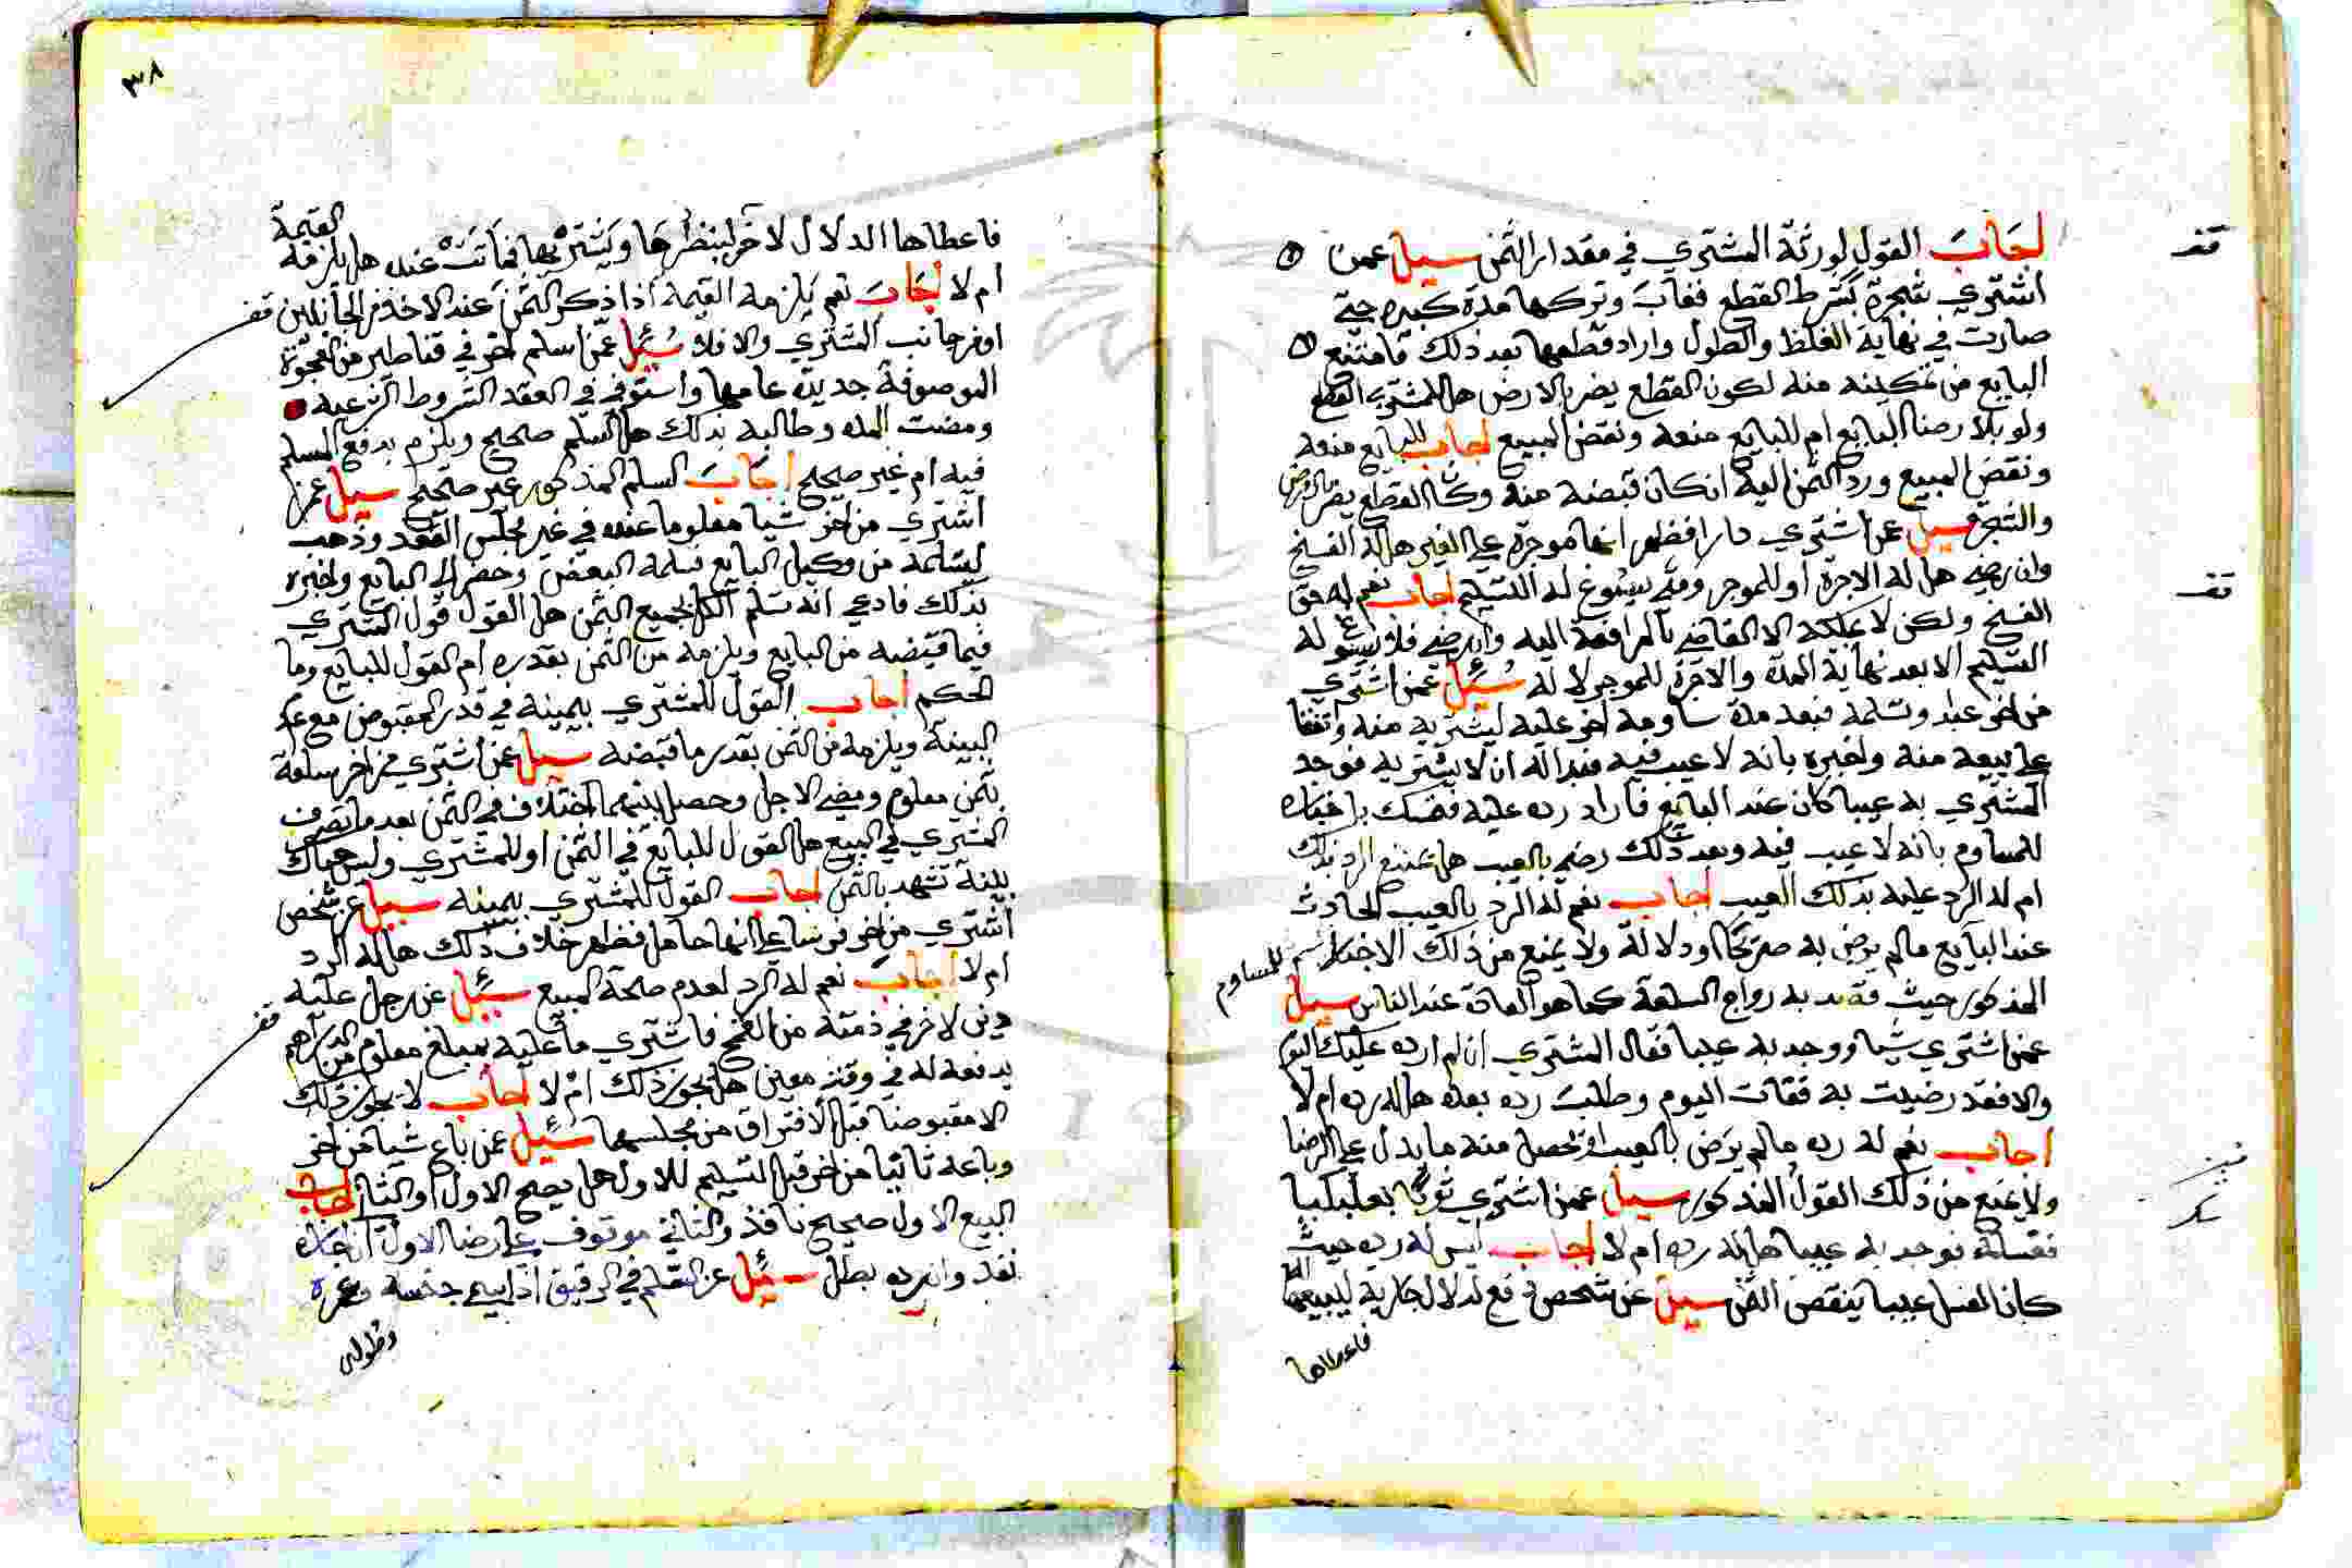 اجاب القول لورثة المشتري في مقدار الثمن سيل عمن
اشتري شجرة بشرط القطع فغاب وتركها مدة كبيره حتي
صارت في نهاية الغلظ والطول واراد قطعها بعد ذلك فامتنع
البايع من تمكينه منه لكون القطع يضر بالارض هل للمشتري القطع
ولو بلا رضا البايع ام للبايع منعه ونقض البيع اجاب للبايع منعه
ونقض البيع ورد الثمن اليه ان كان قبضه منه وكان القطع يضر بالارض
والشجرة سيل عن اشتري دارا فظهر انها موجرة علي الغير هل له الفسخ
وان رضي هل له الاجرة او للموجر ومتي يسوغ له التسليم اجاب نعم له حق
الفسخ ولكن لا يملكه الا القاضي بالمرافعة اليه وان رضي فلا يسوغ له
التسليم الا بعد نهاية المدة والاجرة للموجر لا له سئيل عمن اشتري
من اخر عبد وتسلمه فبعد مدة ساومه اخر عليه ليشتريه منه واتفقا
علي بيعه منه واخبره بانه لا عيب فيه فبدا له ان لا يشتريه فوجد
المشتري به عيبا كان عند البايع فاراد رده عليه فتمسك باخباره
للمساوم بانه لا عيب فيه وبعد ذلك رضي بالعيب هل يمتنع الرد بذلك
ام له الرد عليه بذلك العيب اجاب نعم له الرد بالعيب الحادث
عند البايع مالم يرض به صريحا او دلالة ولا يمنع من ذلك الاخبار للمساوم
المذكور حيث قصد به رواج السلعة كما هو العادة عند الناس سيل
عمن اشتري شيا ووجد به عيبا فقال المشتري ان لم ارده عليك اليوم
والا فقد رضيت به ففات اليوم وطلب رده بعده هل له رده ام لا
اجاب نعم له رده مالم يرض بالعيب او تحصل منه ما يدل علي الرضا
ولا يمنع من ذلك القول المذكور سيل عمن اشتري ثوبا بعلبكيا
فغسله فوجد به عيبا هل له رده ام لا اجاب ليس له رده حيث
كان الغسل عيبا ينقض الثمن سيل عن شخص دفع لدلال جارية ليبيعها
فاعطاها
قف
قف
٣٨
فاعطاها الدلال لاخر لينظرها ويشتريها فماتت عنده هل يلزمه القيمة
ام لا اجاب نعم يلزمه القيمة اذا ذكر الثمن عند الاخذ من الجانبين
او من جانب المشتري والا فلا سئيل عمن اسلم اخر في قناطير من العجوة
الموصوفة جديدة عامها واستوفي في العقد الشروط الشرعيه
ومضت المده وطالبه بذلك هل السلم صحيح ويلزم بدفع المسلم
فيه ام غير صحيح اجاب السلم المذكور غير صحيح سيل عمن
اشتري من اخر شيا معلوما عنده في غير مجلس العقد وذهب
ليتسلمه من وكيل البايع فسلمه البعض وحضر الي البايع واخبره
بذلك فادعي انه تسلم الكل بجميع الثمن هل القول قول المشتري
فيما قبضه من البايع ويلزمه من الثمن بقدره ام القول للبايع وما
الحكم اجاب القول للمشتري بيمينه في قدر المقبوض مع عدم
البينة ويلزمه من الثمن بقدر ما قبضه سيل عمن اشتري من اخر سلعة
بثمن معلوم ومضي الاجل وحصل بينهما اختلاف في الثمن بعد ما تصرف
المشتري في المبيع هل القول للبايع في الثمن او للمشتري وليس هناك
بينة تشهد بالثمن اجاب القول للمشتري بيمينه سيل عن شخص
اشتري من اخر فرسا علي انها حامل فظهر خلاف ذلك هل له الرد
ام لا اجاب نعم له الرد لعدم صحة المبيع سئيل عن رجل عليه
دين لاخر في ذمته من القمح فاشتري ما عليه بمبلغ معلوم من الدراهم
يدفعه له في وقت معين هل يجوز ذلك ام لا اجاب لا يجوز ذلك
الا مقبوضا قبل الافتراق من مجلسهما سئيل عمن باع شيا من اخر
وباعه ثانيا من اخر قبل التسليم للاول هل يصح الاول او الثاني اجاب
البيع الاول صحيح نافذ والثاني موقوف علي رضا الاول ان اجازه
نفذ وان رده بطل سئيل عن السلم في الرقيق اذا بين جنسه وعمره
وطوله
قف
قف